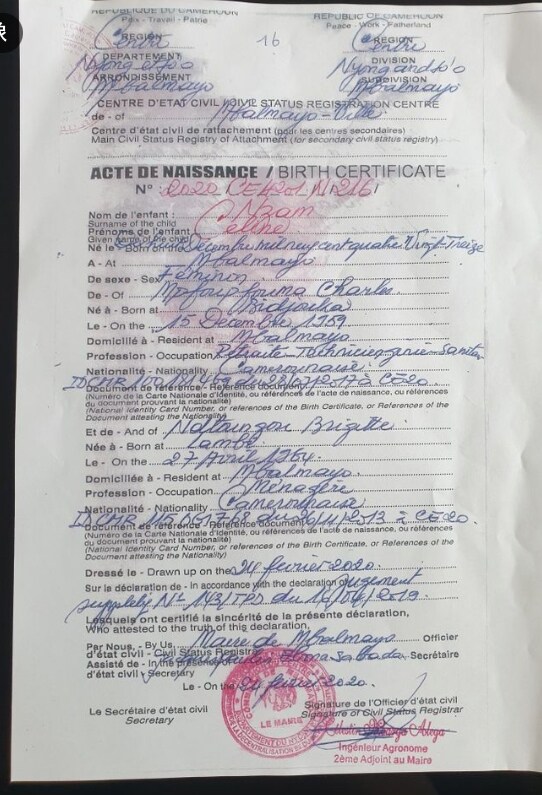 REPUBLIQUE DU CAMEROUN REPUBLIC OF CAMEROON
Paix - Travail - Patrie Peace - Work - Fatherland
REGION 16 REGION
Centre Centre
DEPARTEMENT DIVISION
Nyong et So'o Nyong and So'o
ARRONDISSEMENT SUBDIVISION
Mbalmayo Mbalmayo
CENTRE D'ETAT CIVIL / CIVIL STATUS REGISTRATION CENTRE
de - of Mbalmayo-Ville
Centre d'état civil de rattachement (pour les centres secondaires)
Main Civil Status Registry of Attachment (for secondary civil status registry)
ACTE DE NAISSANCE / BIRTH CERTIFICATE
N° 2020 CE4201 N 216
Nom de l'enfant :
Surname of the child
Prénoms de l'enfant : Celine
Given name of the child
Né le - Born on the Décembre mil neuf cent quatre Vingt-Treize
A - At Mbalmayo
De sexe - Sex Féminin
De - Of Charles
Né à - Born at
Le - On the 15 Décembre 1959
Domicilié à - Resident at Mbalmayo
Profession - Occupation Retraité-Technicien génie-Sanitaire
Nationalité - Nationality Camerounaise
Document de référence - Reference document
(Numéro de la Carte Nationale d'Identité, ou références de l'acte de naissance, ou références
du document prouvant la nationalité)
(National Identity Card Number, or references of the Birth Certificate, or References of the
Document attesting the Nationality)
Et de - And of Brigitte
Née à - Born at
Le - On the 27 Avril 1964
Domiciliée à - Resident at Mbalmayo
Profession - Occupation Ménagère
Nationalité - Nationality Camerounaise
Document de référence - Reference Document
(Numéro de la Carte Nationale d'Identité, ou références de l'acte de naissance, ou références
du document prouvant la nationalité)
(National Identity Card Number, or references of the Birth Certificate, or References of the
Document attesting the Nationality)
Dressé le - Drawn up on the 24 février 2020
Sur la déclaration de - In accordance with the declaration of jugement
supplétif N° 143/TPD du 2019
Lesquels ont certifié la sincérité de la présente déclaration,
Who attested to the truth of this declaration,
Par Nous - By Us, Maire de Mbalmayo Officier
d'état civil - Civil Status Registrar
Assisté de - In the presence of Secrétaire
d'état civil - Secretary
Le - On the 24 février 2020
Le Secrétaire d'état civil Signature de l'Officier d'état civil
Secretary Signature of Civil Status Registrar
LE MAIRE
Ingénieur Agronome
2ème Adjoint au Maire